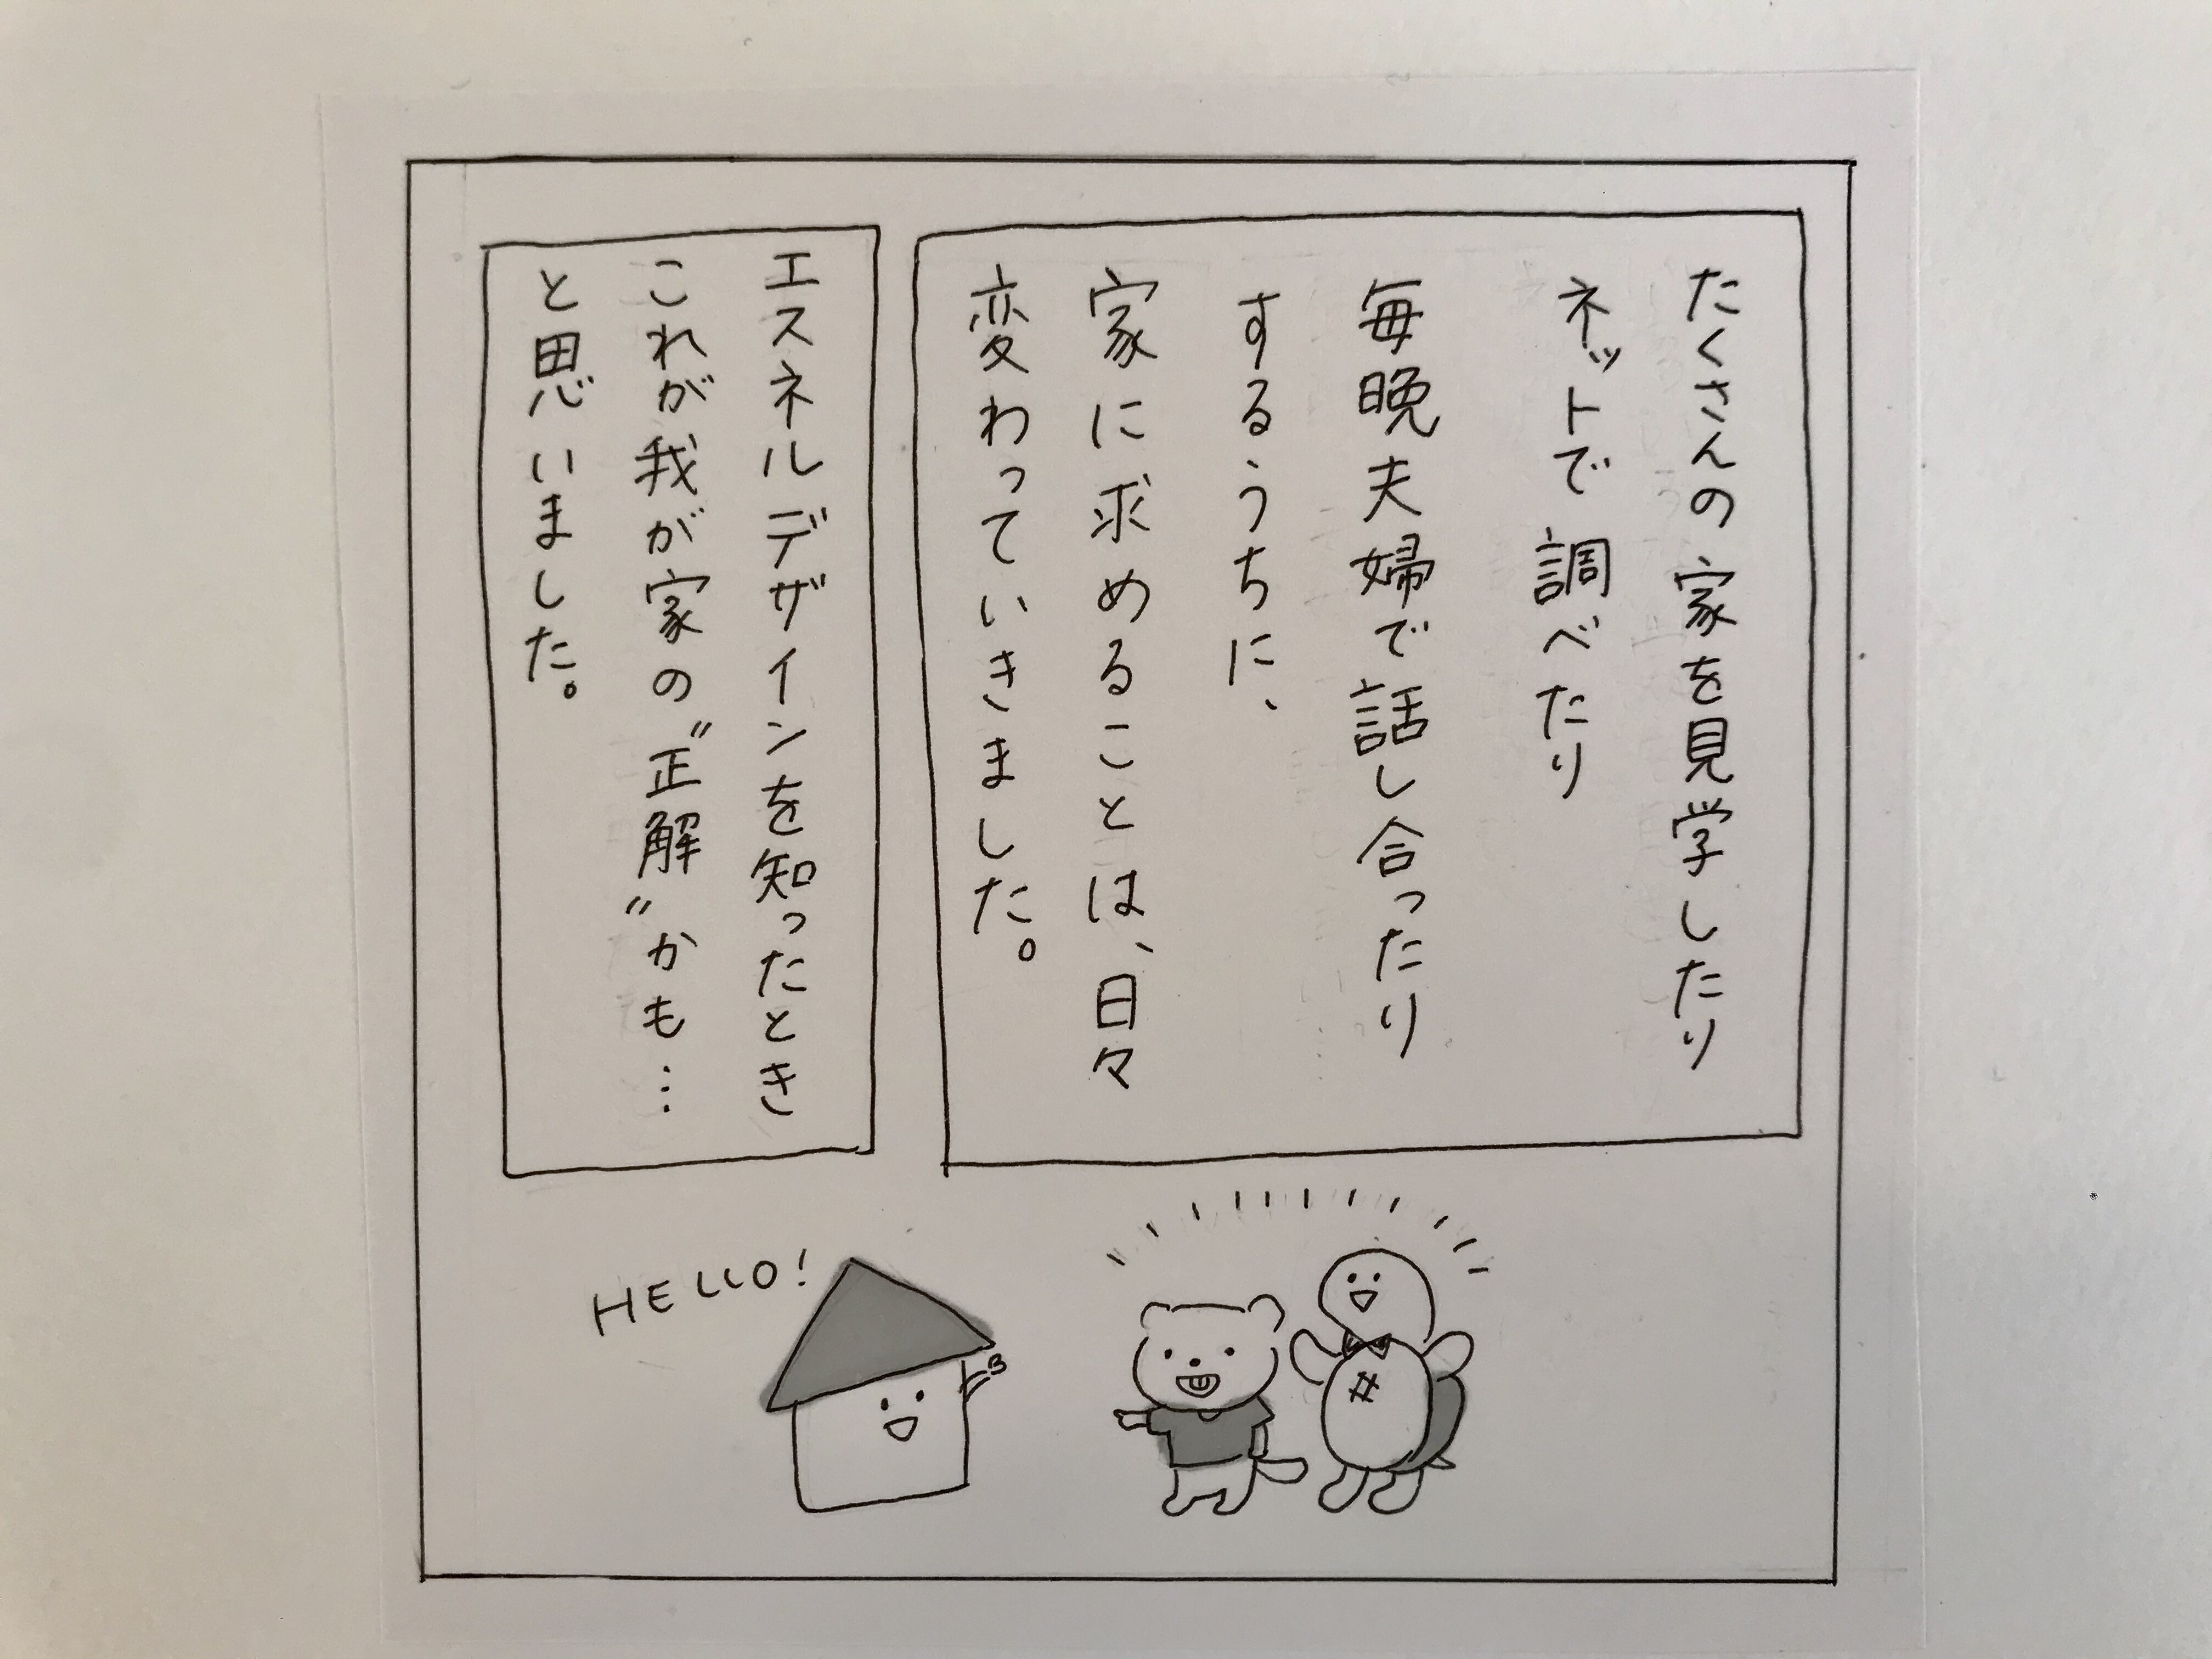 たくさんの家を見学したり
ネットで調べたり
毎晩夫婦で話し合ったり
するうちに、
家に求めることは、日々
変わっていきました。
エスネルデザインを知ったとき
これが我が家の〝正解〟かも…
と思いました。
HELLO!